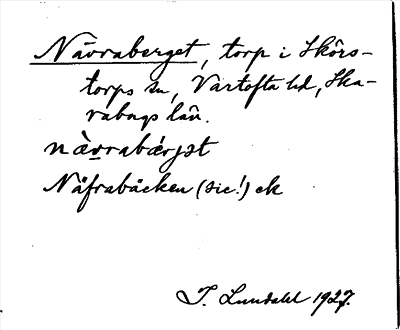 Nävraberget, torp i Skörs-
torps sn, Vartofta hd, Ska-
rabogs län.
nävrabärjət
Näfrabäcken (sic!) ek
I. Lundahl 1927.